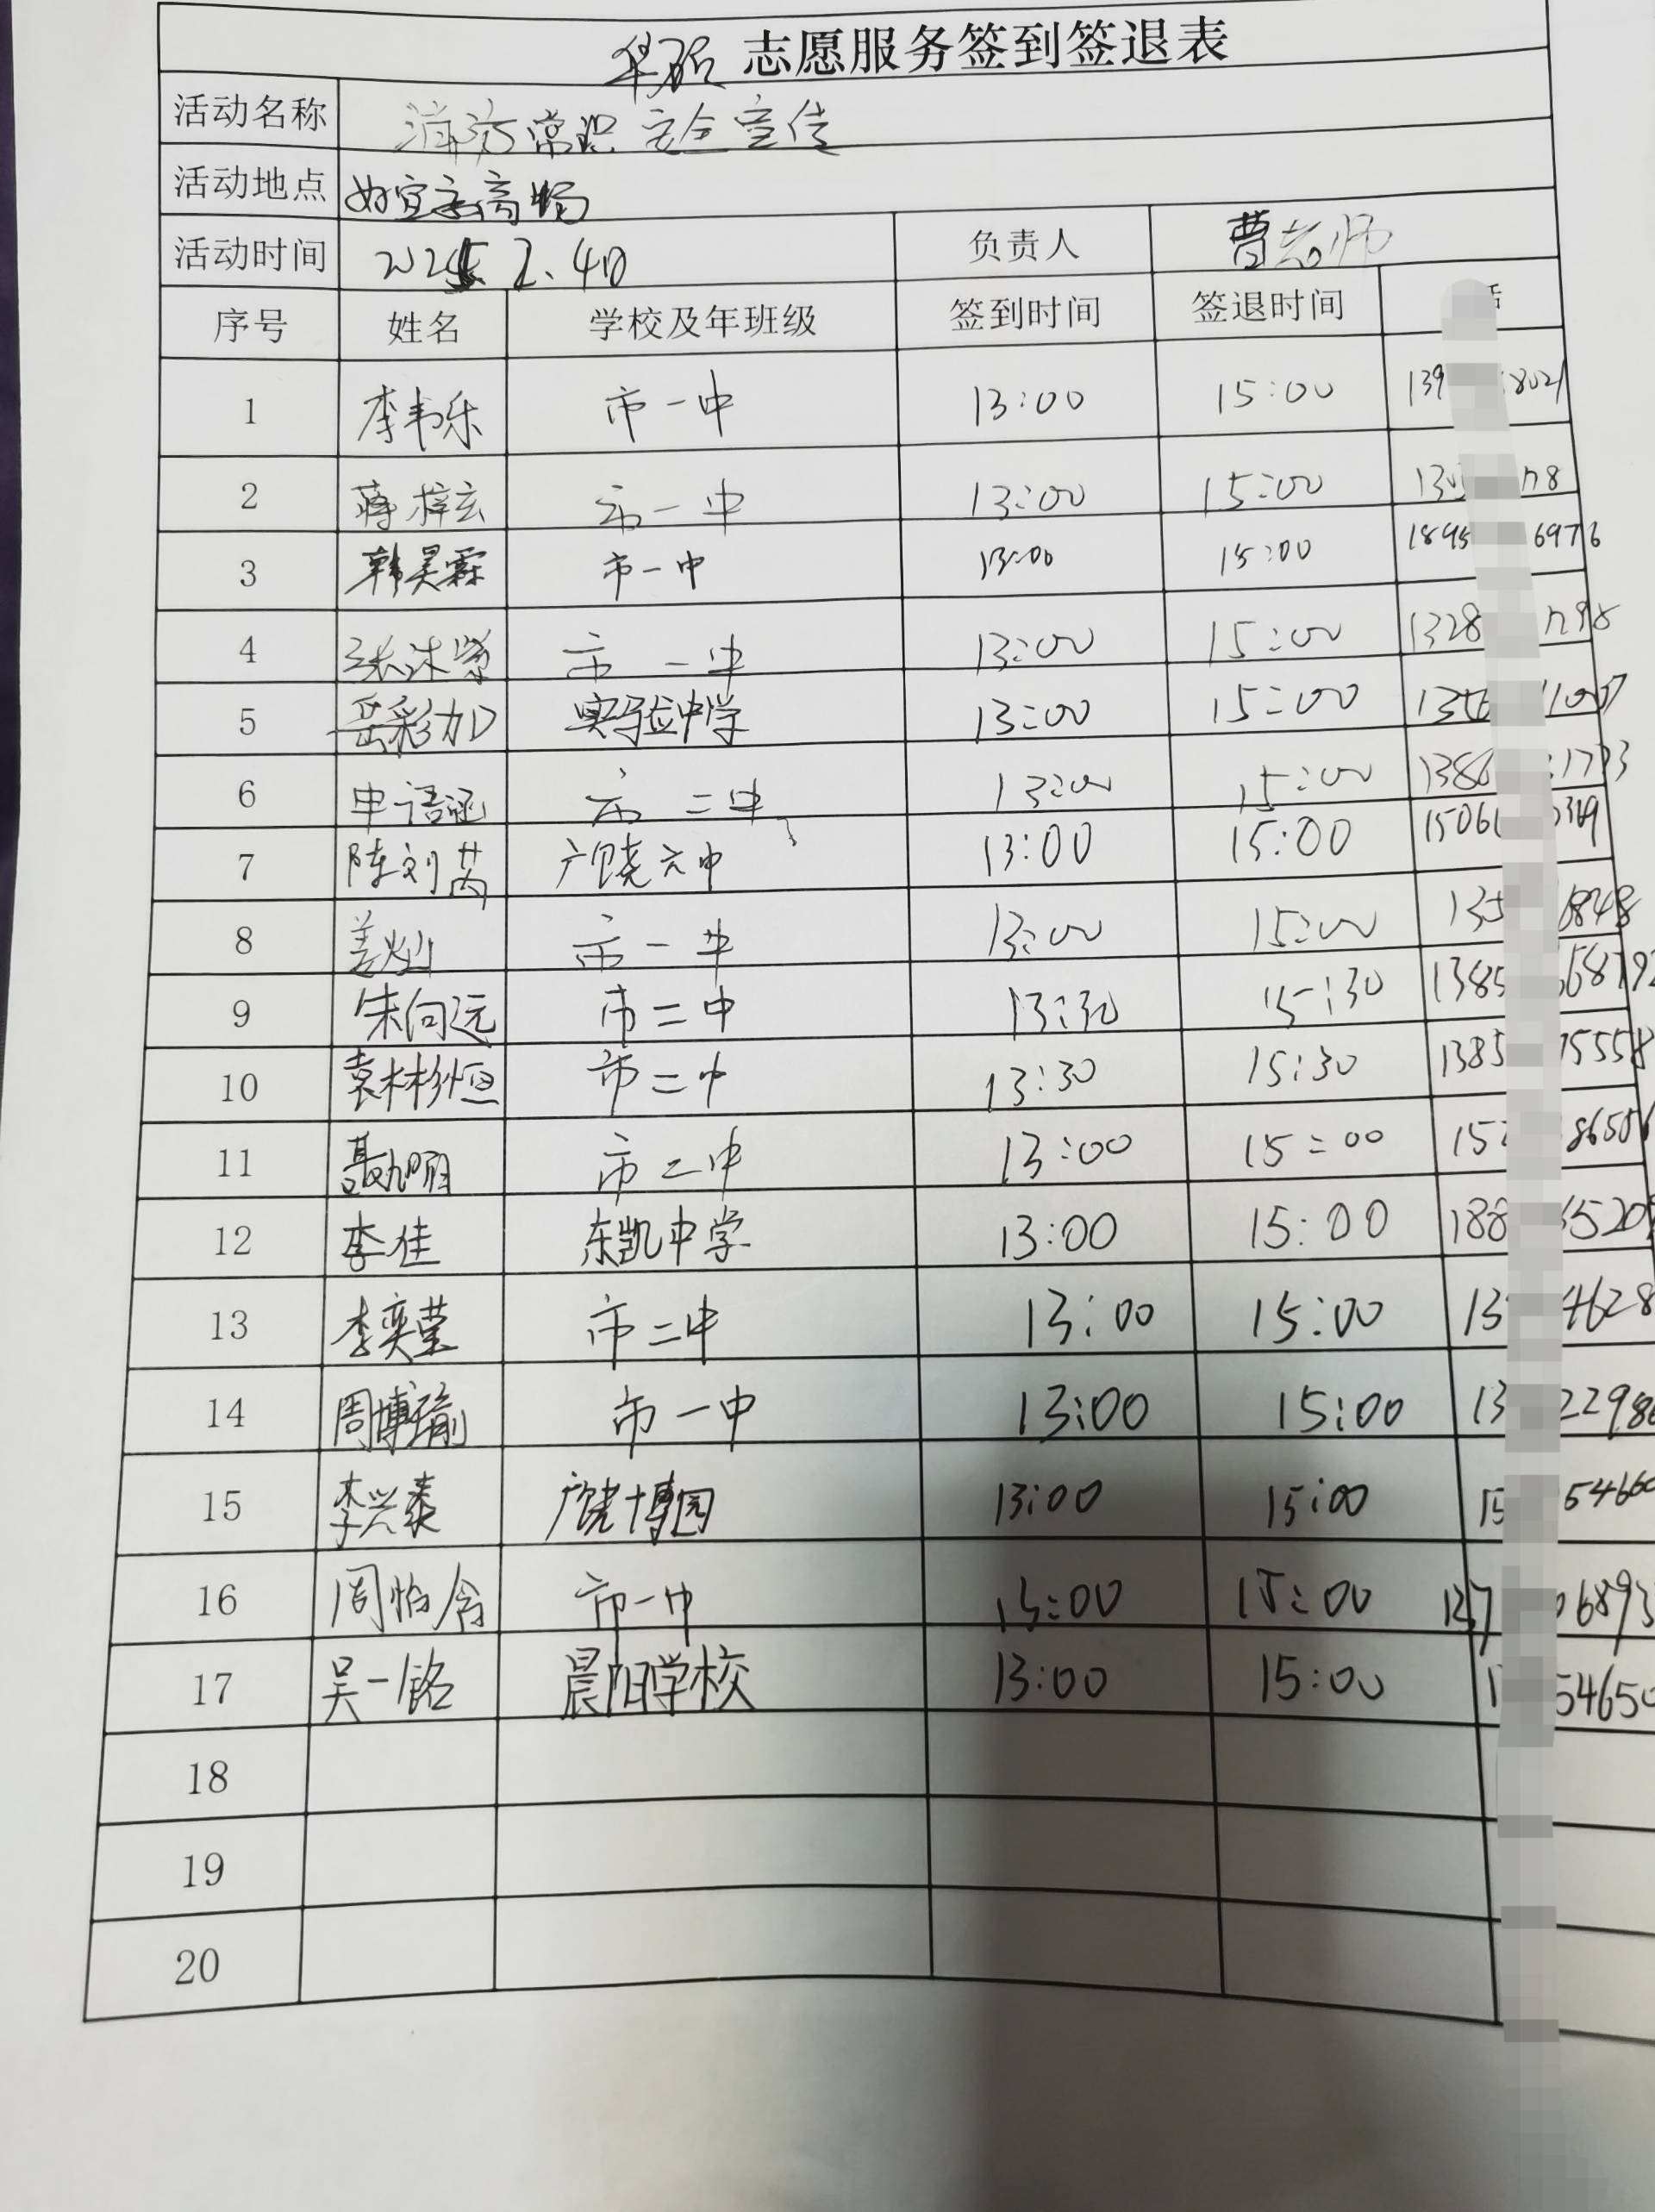 志愿服务签到签退表
活动名称 消防常识安全宣传
活动地点 好宜家商场
活动时间 负责人 曹老师
序号 姓名 学校及年班级 签到时间 签退时间
1 李韦乐 市一中 13:00 15:00 139 8021
2 蒋梓玄 市一中 13:00 15:00
3 韩昊霖 市一中 13:00 15:00 1895 6976
4 市一中 13:00 15:00 1328
5 岳彩加 实验中学 13:00 15:00
6 申语涵 市二中 13:00 15:00 1386
7 陈刘芮 广饶六中 13:00 15:00 1506
8 姜灿 市一中 13:00 15:00 135 6848
9 朱向远 市二中 13:30 15:30 1385
10 袁林杉恒 市二中 13:30 15:30 1385 5558
11 市二中 13:00 15:00 15 8650
12 李佳 东凯中学 13:00 15:00 188 520
13 李奕莹 市二中 13:00 15:00 13 4628
14 周博瑜 市一中 13:00 15:00 13 2298
15 李兴泰 广饶博园 13:00 15:00 15 5466
16 周怡含 市一中 13:00 15:00 6893
17 吴一铭 晨阳学校 13:00 15:00 1 54650
18
19
20